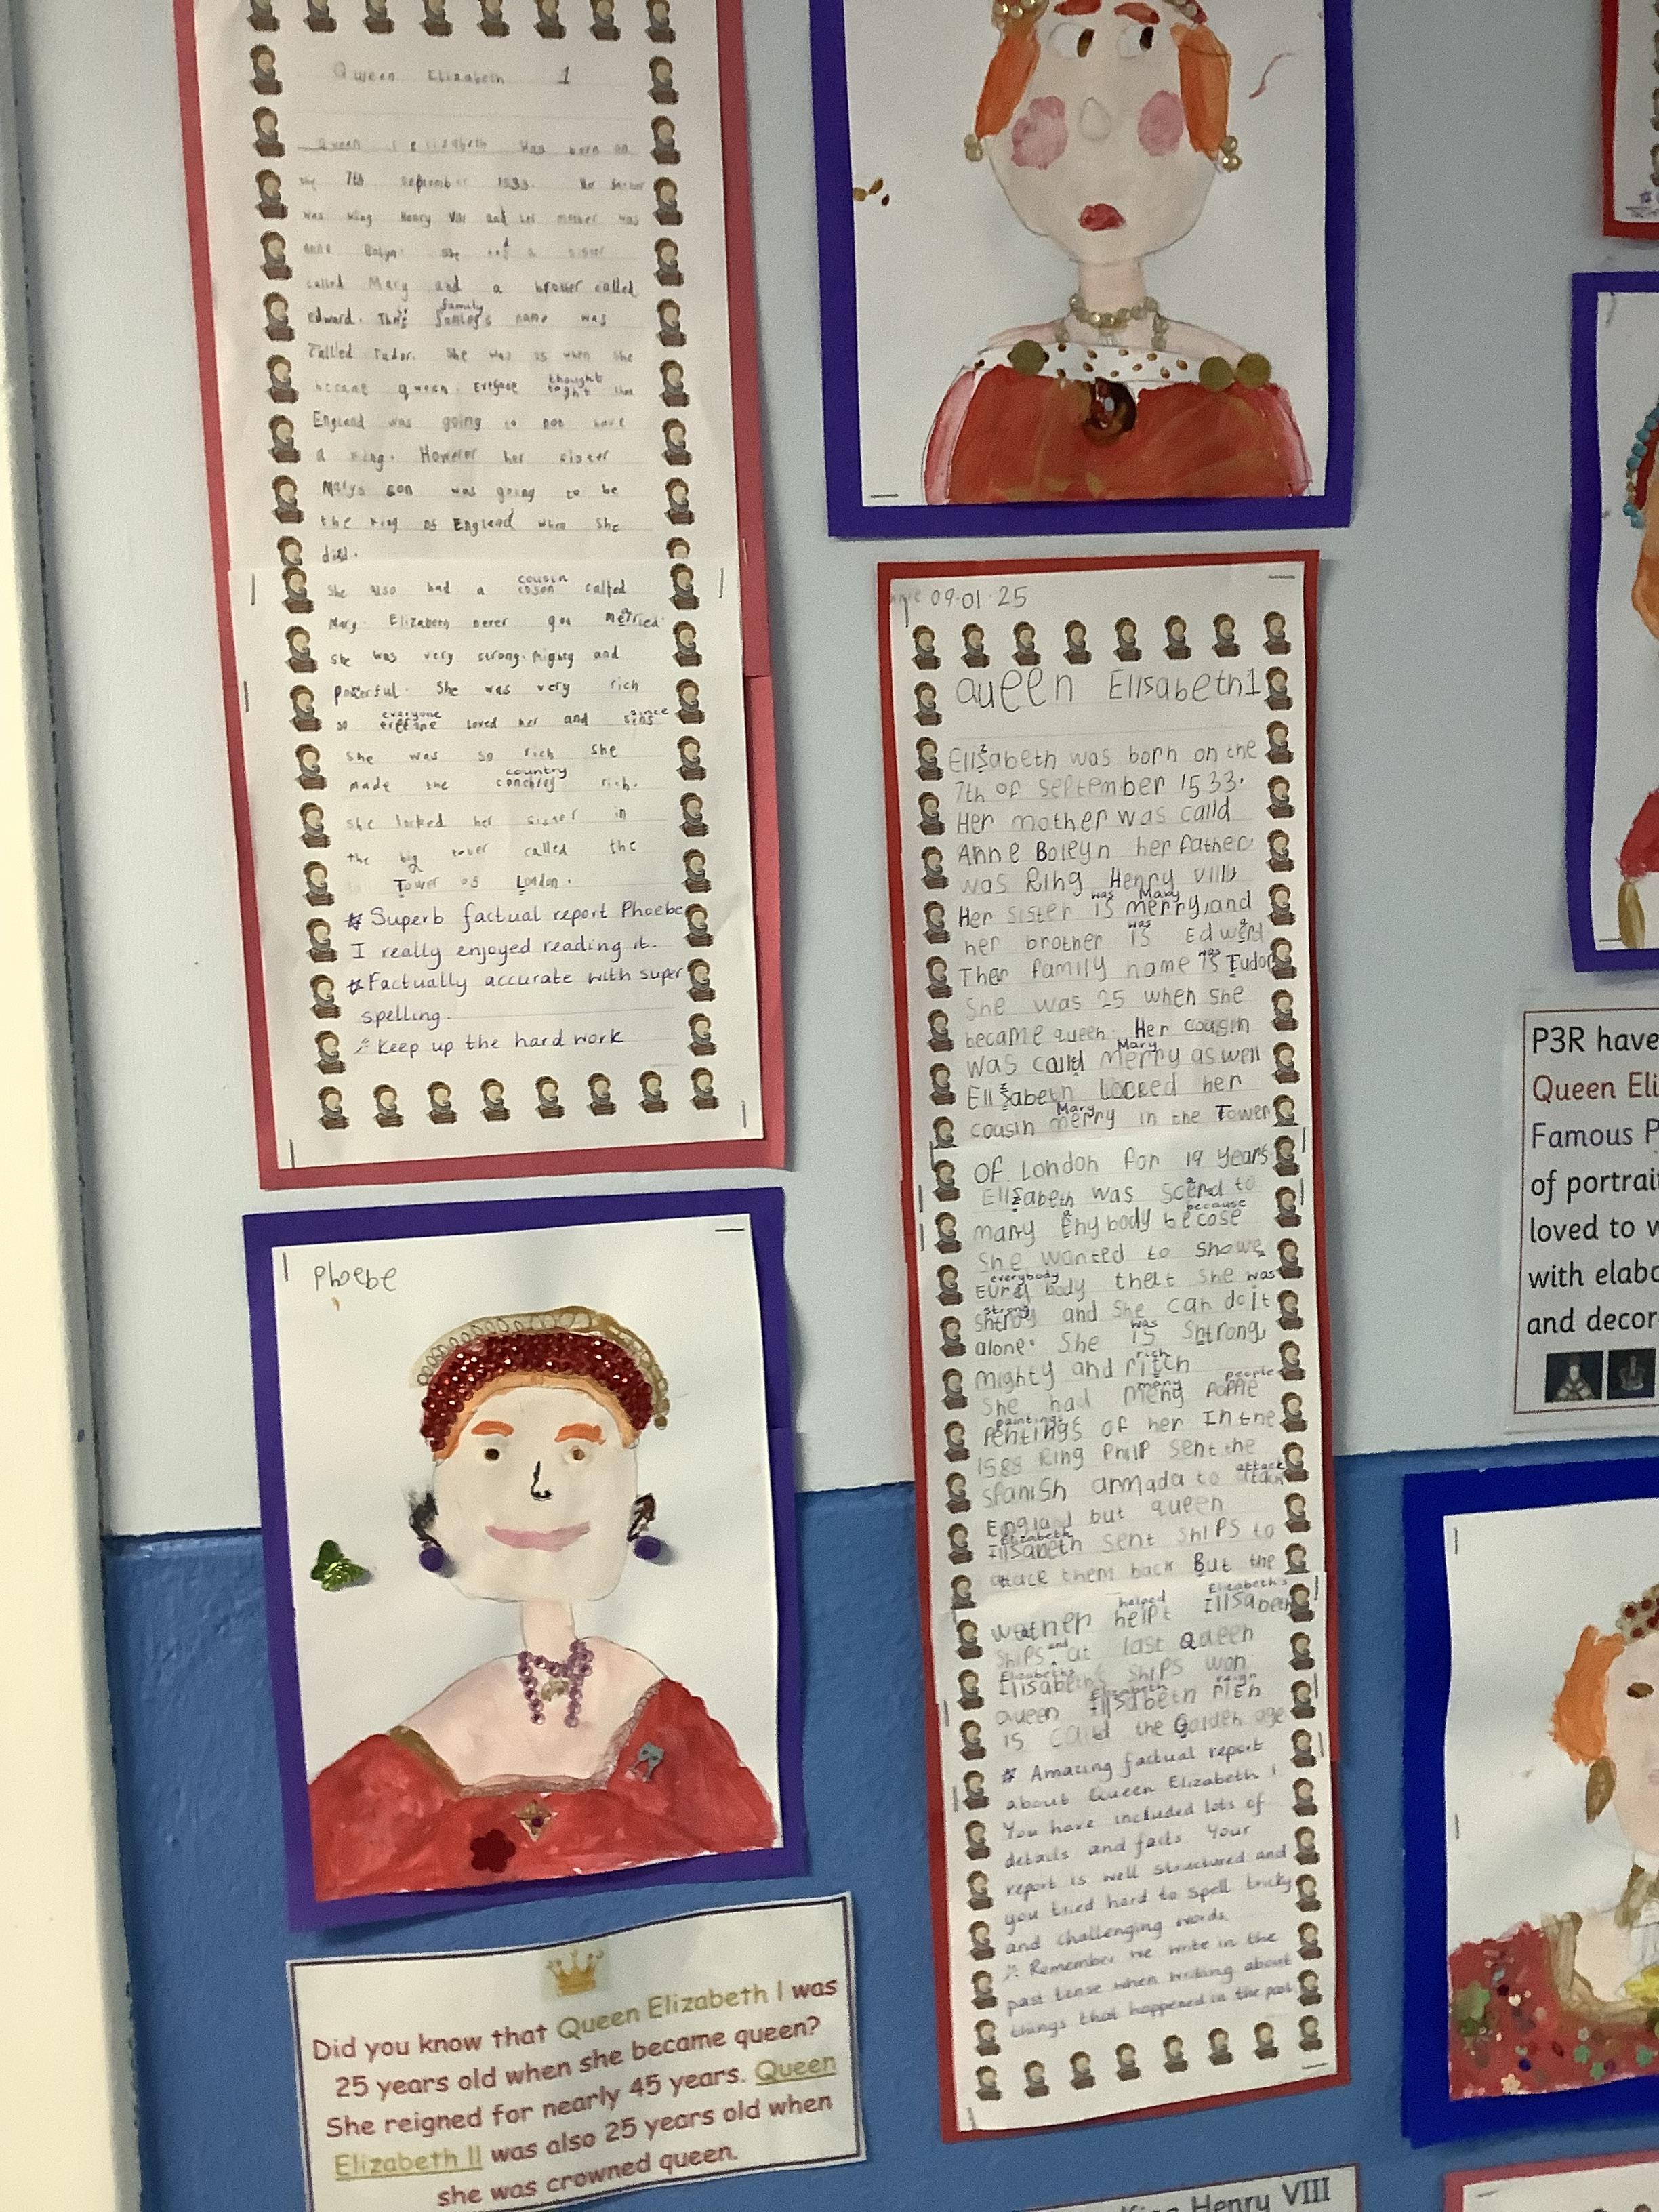 Queen Elizabeth 1
Queen Elizabeth was born on
the 7th September 1533. Her father
was king Henry VIII and her mother was
anne Bolyn. She had a sister
called Mary and a brother called
family
Edward. Their famley's name was
Tallled Tudor. She was 25 when she
thought
became queen. Evryone toght that
England was going to not have
a king. However her sister
Marys son was going to be
the king of England when she
died.
cousin
She also had a coson called
Mary. Elizabeth never got merried.
She was very strong. Mighty and
powerful. She was very rich
everyone since
so loved her and sins
she was so rich she
country
made the rich.
She locked her sister in
the big tower called the
Tower of London.
* Superb factual report Phoebe
I really enjoyed reading it.
* Factually accurate with super
spelling.
Keep up the hard work
Phoebe
Did you know that Queen Elizabeth I was
25 years old when she became queen?
She reigned for nearly 45 years. Queen
Elizabeth II was also 25 years old when
she was crowned queen.
09.01.25
queen Elisabeth1
Elisabeth was born on the
7th of september 1533.
Her mother was calld
Anne Boleyn her father
was King Henry VIII
was Mary
Her sister is merry and
was
her brother is Edward
was
Ther family name is Tudor
She was 25 when she
became queen. Her cousin
Mary
was calld merry as well
Elisabeth Locked her
Mary
cousin merry in the Tower
of London for 19 years
Elisabeth was scared to
because
marry Enybody becose
She wanted to Showe
everybody
body that She was
strong
and She can do it
was
alone. She is Shtrong,
rich
mighty and ritch
many people
She had meny
paintings
Pentings of her In the
1588 King Philp sent the
attack
spanish armada to
England but queen
Elizabeth
Ellsabeth sent ShiPS to
attack them back But the
helped Elizabeth's
helpt
and
ShiPS at last Queen
Elizabeth's
ShiPS won
Elizabeth reign
queen
is calld the Golden age
* Amazing factual report
about Queen Elizabeth I
You have included lots of
details and facts. Your
report is well structured and
you tried hard to spell tricky
and challenging words.
Remember we write in the
past tense when writing about
things that happened in the past
P3R have
Queen Eli
Famous P
of portrai
loved to w
with elabo
and decor
Henry VIII